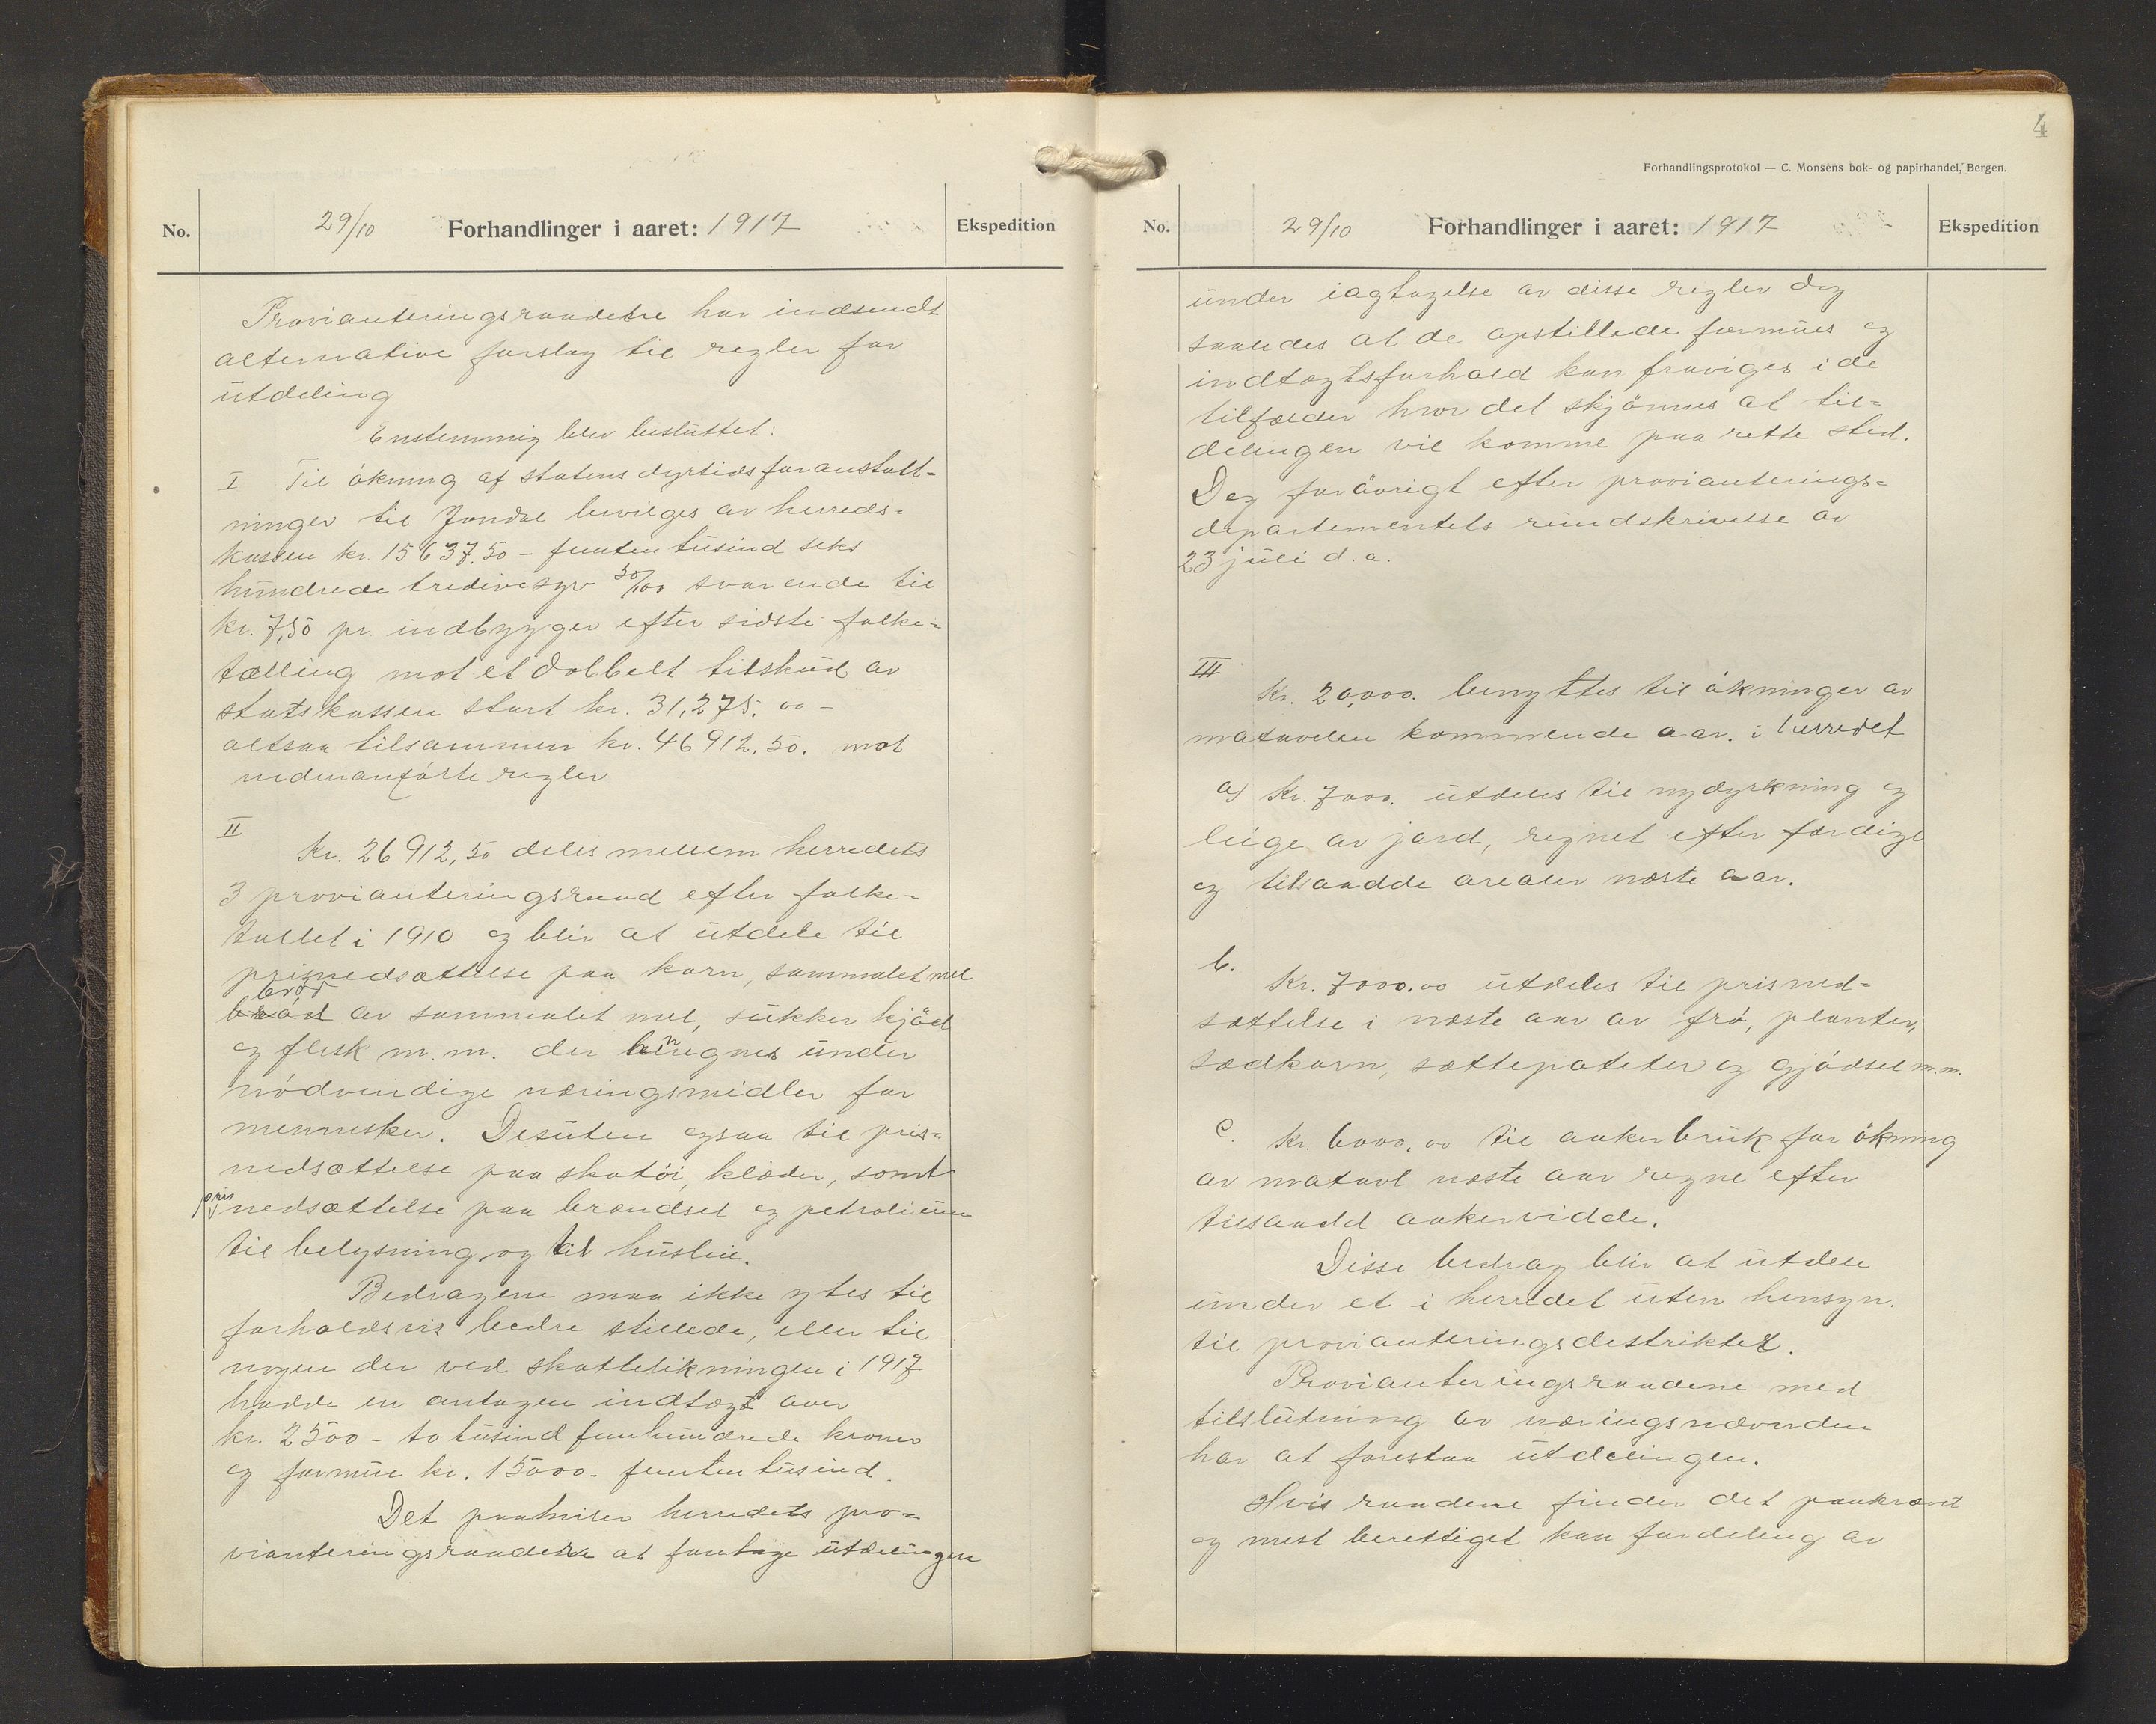 No.
29/10 Forhandlinger i aaret: 1917
Ekspedition
Provianteringsraadene har indsendt
alternative forslag til regler for
utdeling
Enstemmig blev besluttet:
I Til økning af statens dyrtidsforanstalt-
ninger til Jondal bevilges av herreds-
kassen kr. 15637.50 – femten tusind seks
hundrede tredivesyv 50/100 svarende til
kr. 7,50 pr. indbygger efter sidste folke-
tælling mot et dobbelt tilskud av
statskassen stort kr. 31,275.00 –
altsaa tilsammen kr. 46912,50. mot
nedenanførte regler
II
Kr. 26912,50 deles mellem herredets
3 provianteringsraad efter folke-
tallet i 1910 og blir at utdele til
prisnedsættelse paa korn, sammalet mel
brød
av sammalet mel, sukker kjød
og flesk m.m. der henregnes under
nødvendige næringsmidler for
mennesker. Desuten ogsaa til pris-
nedsættelse paa skotøi, klæder, samt
prisnedsættelse paa brændsel og petrolium
til belysning og til husleie.
Bedragene maa ikke ytes til
forholdsvis bedre stillede, eller til
nogen der ved skattelikningen i 1917
hadde en antagen indtægt over
kr. 2500 – to tusind femhundrede kroner
og formue kr. 15000 – femten tusind.
Det paahviler herredets pro-
vianteringsraadene at foretage utdelingen
4
Forhandlingsprotokol — C. Monsens bok- og papirhandel, Bergen.
No.
29/10 Forhandlinger i aaret: 1917
Ekspedition
under iagtagelse av disse regler dog
saaledes at de opstillede formues og
indtægtsforhold kan fraviges i de
tilfælder hvor det skjønnes at til-
delingen vil komme paa rette sted.
Dog forøvrigt efter provianterings-
departementets rundskrivelse av
23 juli d.a.
III
Kr. 20,000. benyttes til økninger av
matavlen kommende aar. i herredet
a) Kr. 7000. utdeles til nydyrkning og
leige av jord, regnet efter færdige
og tilsaadde arealer næste aar.
b.
Kr. 7000.00 utdeles til prisned-
sættelse i næste aar av frø, planter,
sædkorn, sættepoteter og gjødsel m.m.
c. Kr. 6000.00 til aakerbruk for økning
av matavl næste aar regne efter
tilsaadd aakervidde.
Disse bedrag blir at utdele
under et i herredet uten hensyn.
til provianteringsdestriktet.
Provianteringsraadene med
tilslutning av næringsnævnden
har at forestaa utdelingen.
Hvis raadene finder det paakrævet
og mest berettiget kan fordeling av